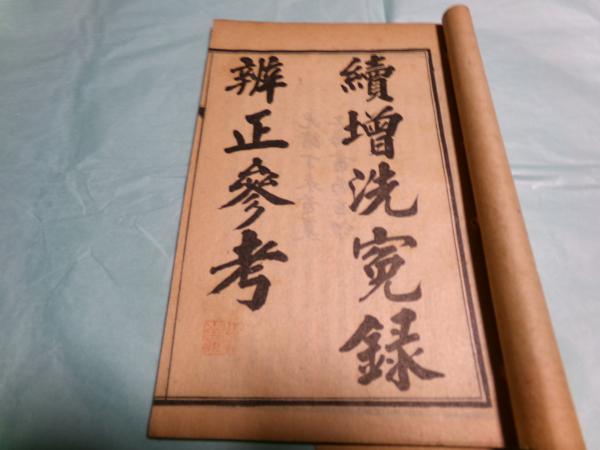 續增洗寃録
辨正參考